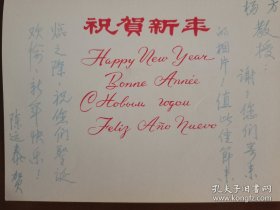 祝賀新年
Happy New Year
Bonne Année
С Новым годом
Feliz Año Nuevo
方 杨 教授
谢谢您们寄来
的相片！值此佳节来
临之际 祝您们圣诞
欢愉、新年快乐！
陈运泰 贺